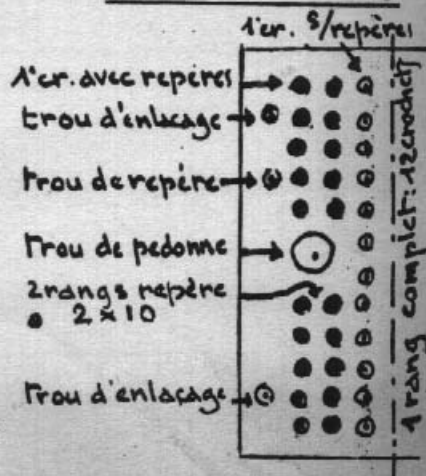 1'er. s/repères
1'er. avec repères
trou d'enlaçage
trou de repère
trou de pedonne
2 rangs repère
2 x 10
trou d'enlaçage
1 rang complet: 12 crochets